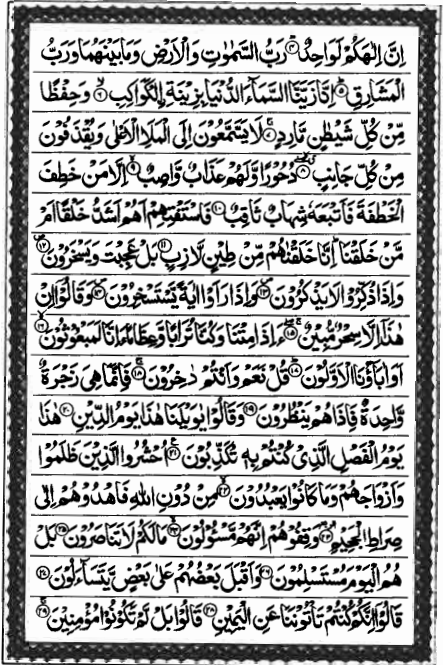 اِنَّ اِلٰهَكُمْ لَوَاحِدٌ ﴿۴﴾ رَبُّ السَّمٰوٰتِ وَالْاَرْضِ وَمَا بَيْنَهُمَا وَرَبُّ
الْمَشَارِقِ ﴿۵﴾ اِنَّا زَيَّنَّا السَّمَآءَ الدُّنْيَا بِزِيْنَةِ ِۨالْكَوَاكِبِ ﴿۶﴾ وَحِفْظًا
مِّنْ كُلِّ شَيْطٰنٍ مَّارِدٍ ﴿۷﴾ لَا يَسَّمَّعُوْنَ اِلَى الْمَلَاِ الْاَعْلٰى وَيُقْذَفُوْنَ
مِنْ كُلِّ جَانِبٍ ﴿۸﴾ دُحُوْرًا وَّلَهُمْ عَذَابٌ وَّاصِبٌ ﴿۹﴾ اِلَّا مَنْ خَطِفَ
الْخَطْفَةَ فَاَتْبَعَهٗ شِهَابٌ ثَاقِبٌ ﴿۱۰﴾ فَاسْتَفْتِهِمْ اَهُمْ اَشَدُّ خَلْقًا اَمْ
مَّنْ خَلَقْنَا اِنَّا خَلَقْنٰهُمْ مِّنْ طِيْنٍ لَّازِبٍ ﴿۱۱﴾ بَلْ عَجِبْتَ وَيَسْخَرُوْنَ ﴿۱۲﴾
وَاِذَا ذُكِّرُوْا لَا يَذْكُرُوْنَ ﴿۱۳﴾ وَاِذَا رَاَوْا اٰيَةً يَّسْتَسْخِرُوْنَ ﴿۱۴﴾ وَقَالُوْا اِنْ
هٰذَا اِلَّا سِحْرٌ مُّبِيْنٌ ﴿۱۵﴾ ءَاِذَا مِتْنَا وَكُنَّا تُرَابًا وَّعِظَامًا ءَاِنَّا لَمَبْعُوْثُوْنَ ﴿۱۶﴾
اَوَاٰبَآؤُنَا الْاَوَّلُوْنَ ﴿۱۷﴾ قُلْ نَعَمْ وَاَنْتُمْ دٰخِرُوْنَ ﴿۱۸﴾ فَاِنَّمَا هِيَ زَجْرَةٌ
وَّاحِدَةٌ فَاِذَا هُمْ يَنْظُرُوْنَ ﴿۱۹﴾ وَقَالُوْا يٰوَيْلَنَا هٰذَا يَوْمُ الدِّيْنِ ﴿۲۰﴾ هٰذَا
يَوْمُ الْفَصْلِ الَّذِيْ كُنْتُمْ بِهٖ تُكَذِّبُوْنَ ﴿۲۱﴾ اُحْشُرُوا الَّذِيْنَ ظَلَمُوْا
وَاَزْوَاجَهُمْ وَمَا كَانُوْا يَعْبُدُوْنَ ﴿۲۲﴾ مِنْ دُوْنِ اللّٰهِ فَاهْدُوْهُمْ اِلٰى
صِرَاطِ الْجَحِيْمِ ﴿۲۳﴾ وَقِفُوْهُمْ اِنَّهُمْ مَّسْئُوْلُوْنَ ﴿۲۴﴾ مَا لَكُمْ لَا تَنَاصَرُوْنَ ﴿۲۵﴾ بَلْ
هُمُ الْيَوْمَ مُسْتَسْلِمُوْنَ ﴿۲۶﴾ وَاَقْبَلَ بَعْضُهُمْ عَلٰى بَعْضٍ يَّتَسَآءَلُوْنَ ﴿۲۷﴾
قَالُوْا اِنَّكُمْ كُنْتُمْ تَاْتُوْنَنَا عَنِ الْيَمِيْنِ ﴿۲۸﴾ قَالُوْا بَلْ لَّمْ تَكُوْنُوْا مُؤْمِنِيْنَ ﴿۲۹﴾